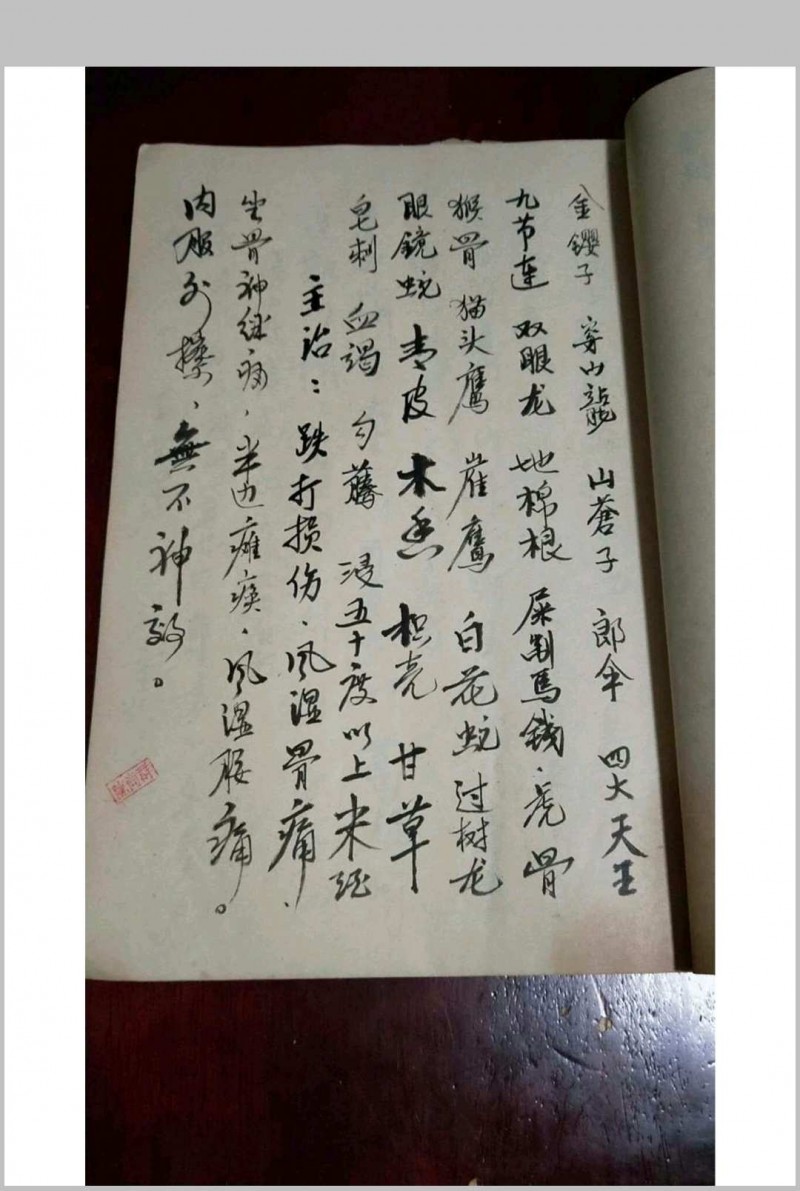 金鑜子 穿山龍 山蒼子 郎伞 四大天王
九节連 双眼龙 地棉根 屎割馬錢、虎骨
猴骨 猫头鹰 崖鹰 白花蛇 过树龙
眼镜蛇 青皮 木香 枳壳 甘草
皂刺 血竭 勾藤 浸五十度以上米酒
主治：跌打损伤、风湿骨痛、
坐骨神经痛，半边瘫痪、风湿腰痛。
内服外擦、無不神效。